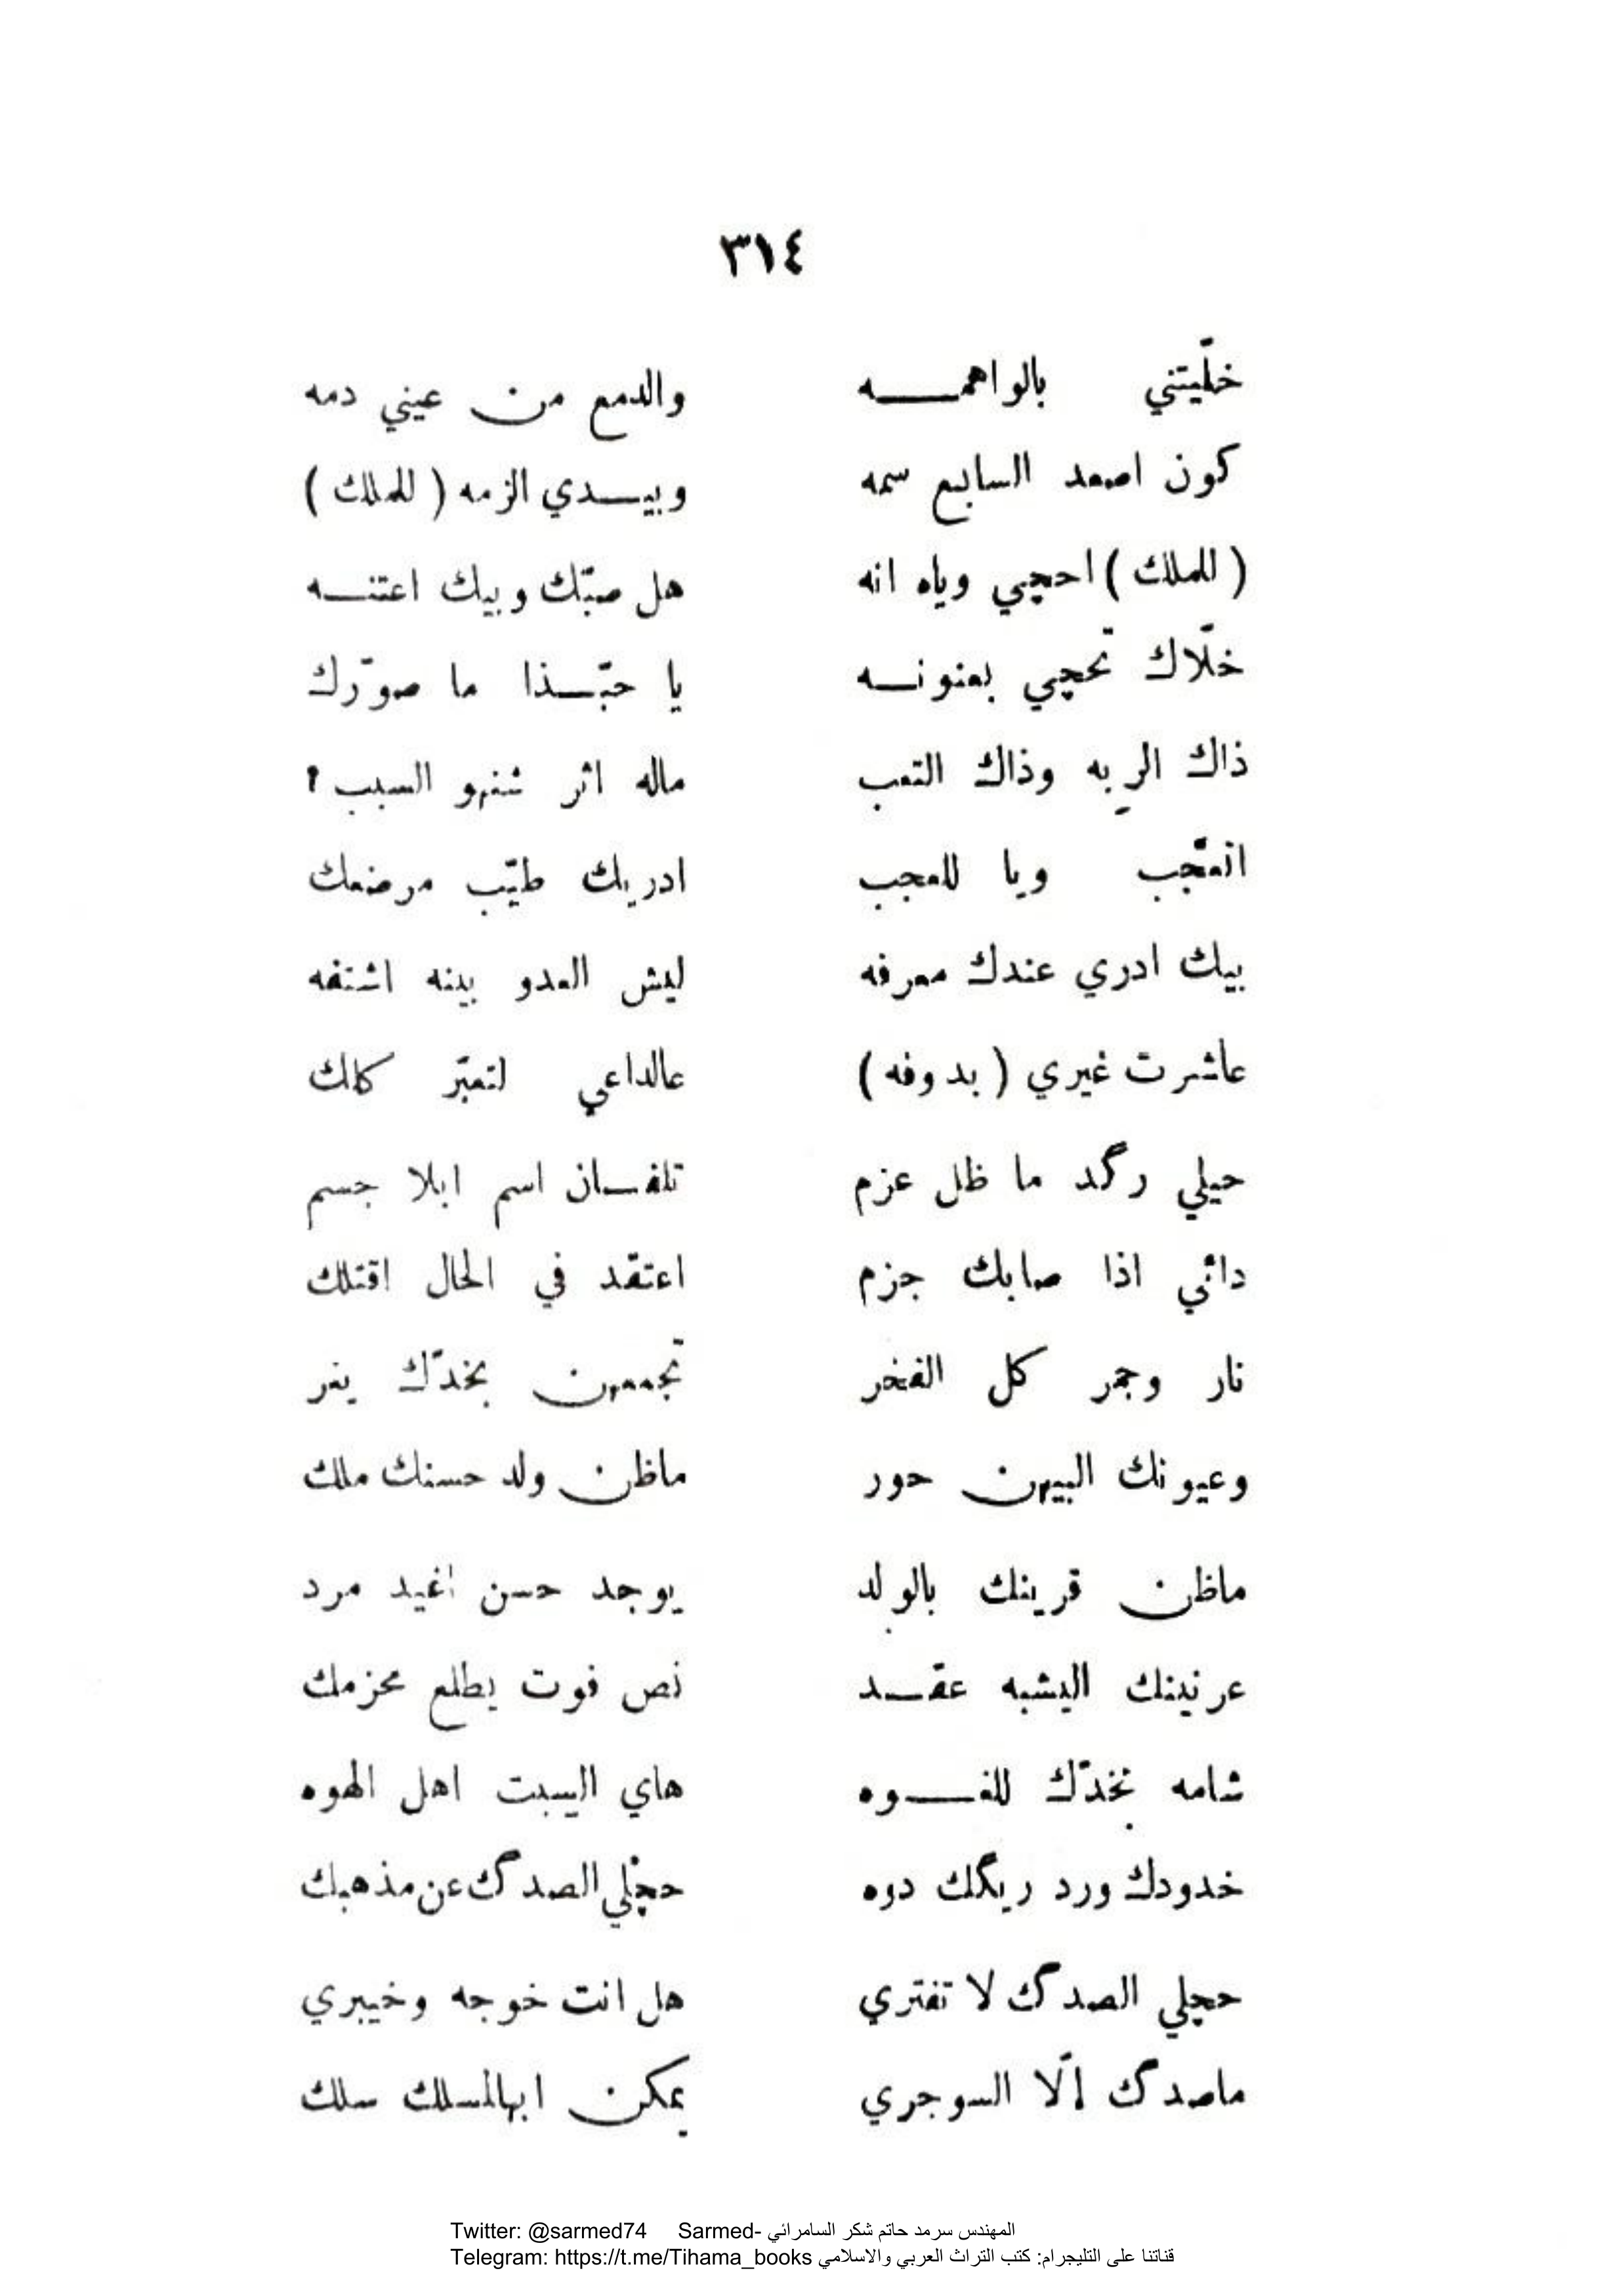 ٣١٤
خلّيتني بالواهمـــه والدمع من عيني دمه
كون اصعد السابع سمه وبيـــدي الزمه ( للملك )
( للملك ) احچي وياه انه هل صبّك وبيك اعتنـــه
خلّاك تحچي بعنونـــه يا حبّـــذا ما صوّرك
ذاك الربه وذاك التعب ماله اثر شنهو السبب ؟
اتعجّب ويا للعجب ادريك طيّب مرضعك
بيك ادري عندك معرفه ليش العدو بينه اشتفه
عاشرت غيري ( بدوفه ) عالداعي لتعبّر كلك
حيلي رگد ما ظل عزم تلفـــان اسم ابلا جسم
دائي اذا صابك جزم اعتقد في الحال اقتلك
نار وجمر كل الفخر تجمعهن بخدّك يغر
وعيونك البيهن حور ماظن ولد حسنك ملك
ماظن قرينك بالولد يوجد حسن اغيد مرد
عرنينك اليشبه عقـــد نص فوت يطلع محزمك
شامه بخدّك للغـــوه هاي اليسبت اهل الهوه
خدودك ورد ريگك دوه حچلي الصدگ عن مذهبك
حچلي الصدگ لا تفتري هل انت خوجه وخيبري
ماصدگ إلّا السوجري يمكن ابهالمسلك سلك
Twitter: @sarmed74 Sarmed- المهندس سرمد حاتم شكر السامرائي
Telegram: https://t.me/Tihama_books قناتنا على التليجرام: كتب التراث العربي والاسلامي